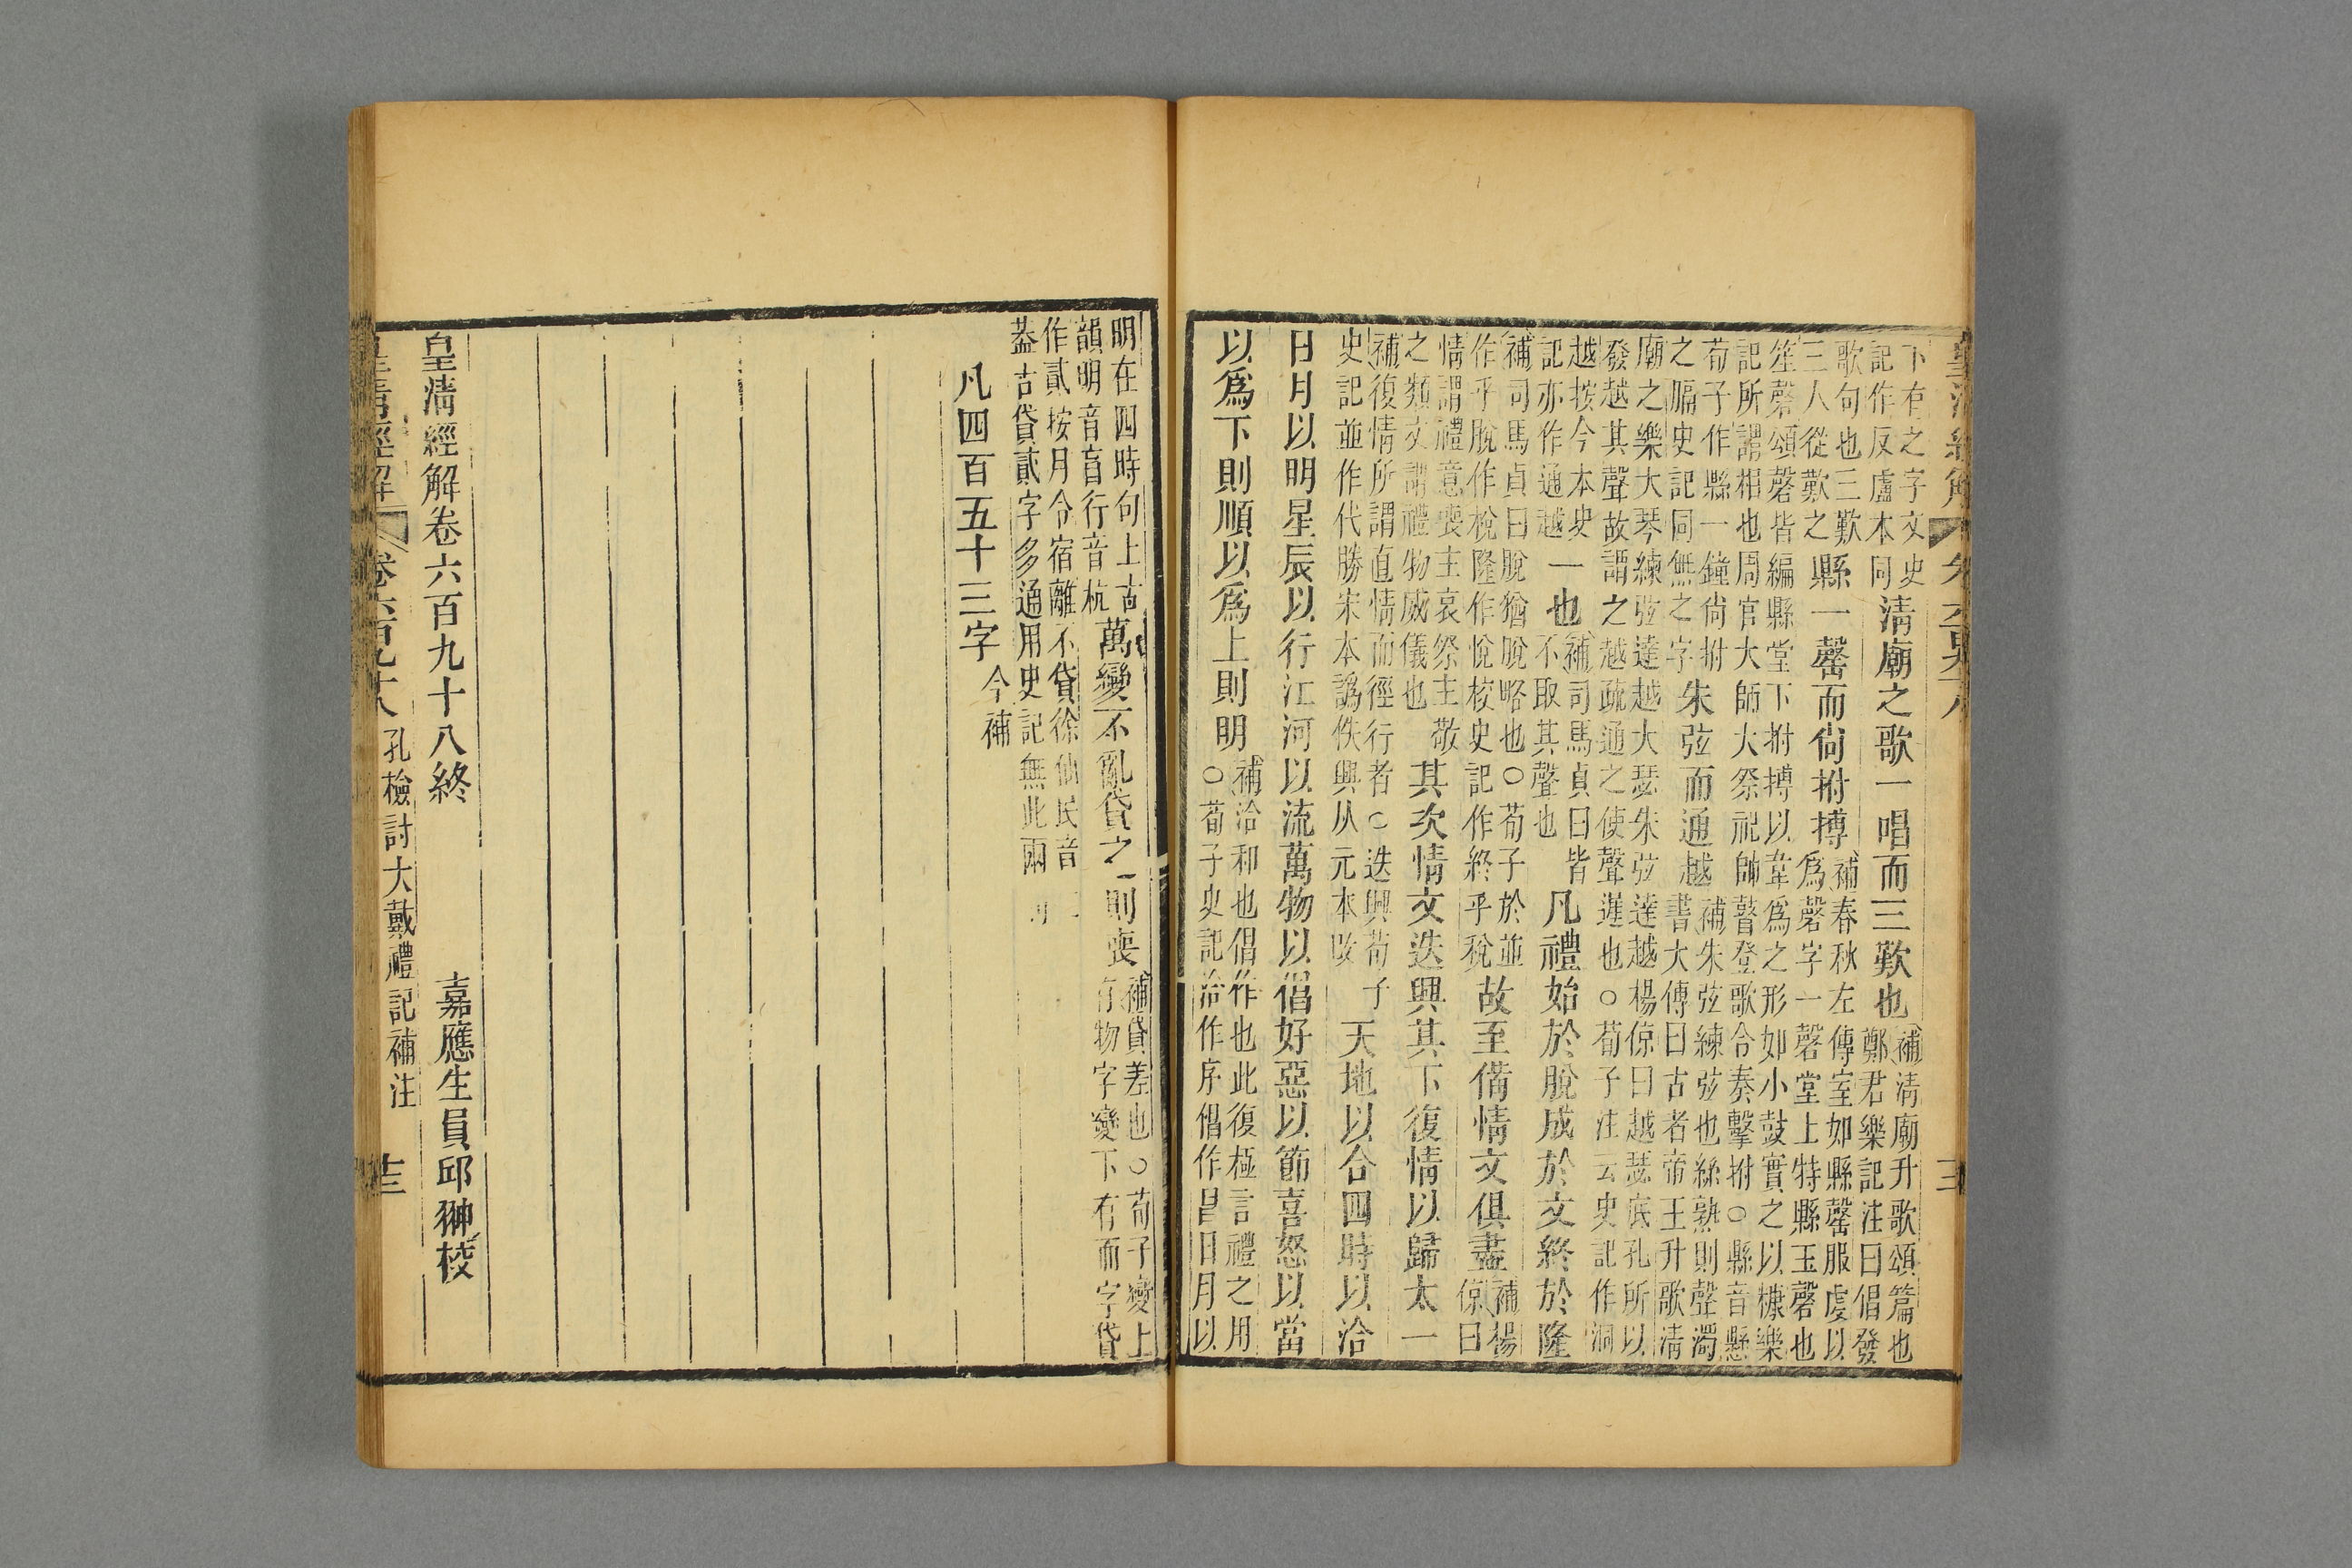 下有之字文史
記作反盧本同
清廟之歌一唱而三歎也
補清廟升歌頌篇也
鄭君樂記注曰倡發
歌句也三歎
三人從歎之
縣一罄而尙拊搏
補春秋左傳室如縣罄服虔以
爲磬字一磬堂上特縣玉磬也
笙磬頌磬皆編縣堂下拊搏以葦爲之形如小鼓實之以糠樂
記所謂相也周官大師大祭祀帥瞽登歌合奏擊拊○縣音懸
荀子作縣一鐘尙拊
之膈史記同無之字
朱弦而通越
補朱弦練弦也絲熟則聲濁
書大傳曰古者帝王升歌清
廟之樂大琴練弦達越大瑟朱弦達越楊倞曰越瑟底孔所以
發越其聲故謂之越疏通之使聲遲也○荀子注云史記作洞
越按今本史
記亦作通越
一也
補司馬貞曰皆
不取其聲也
凡禮始於脫成於文終於隆
補司馬貞曰脫猶脫略也○荀子於並
作乎脫作梲隆作悅校史記作終乎稅
故至備情文俱盡
補楊
倞曰
情謂禮意喪主哀祭主敬
之類文謂禮物威儀也
其次情文迭興其下復情以歸太一
補復情所謂直情而徑行者○迭興荀子
史記並作代勝宋本譌佚興从元本改
天地以合四時以洽
日月以明星辰以行江河以流萬物以倡好惡以節喜怒以當
以爲下則順以爲上則明
補洽和也倡作也此復極言禮之用
○荀子史記洽作序倡作昌日月以
明在四時句上古
韻明音盲行音杭
萬變不亂貸之則喪
補貸差也○荀子變上
有物字變下有而字貸
作貳按月令宿離不貸徐仙民音二
葢古貸貳字多通用史記無此兩
凡四百五十三字
今補
皇清經解卷六百九十八終
嘉應生員邱翀校
皇清經解 卷六百九十八 孔檢討大戴禮記補注